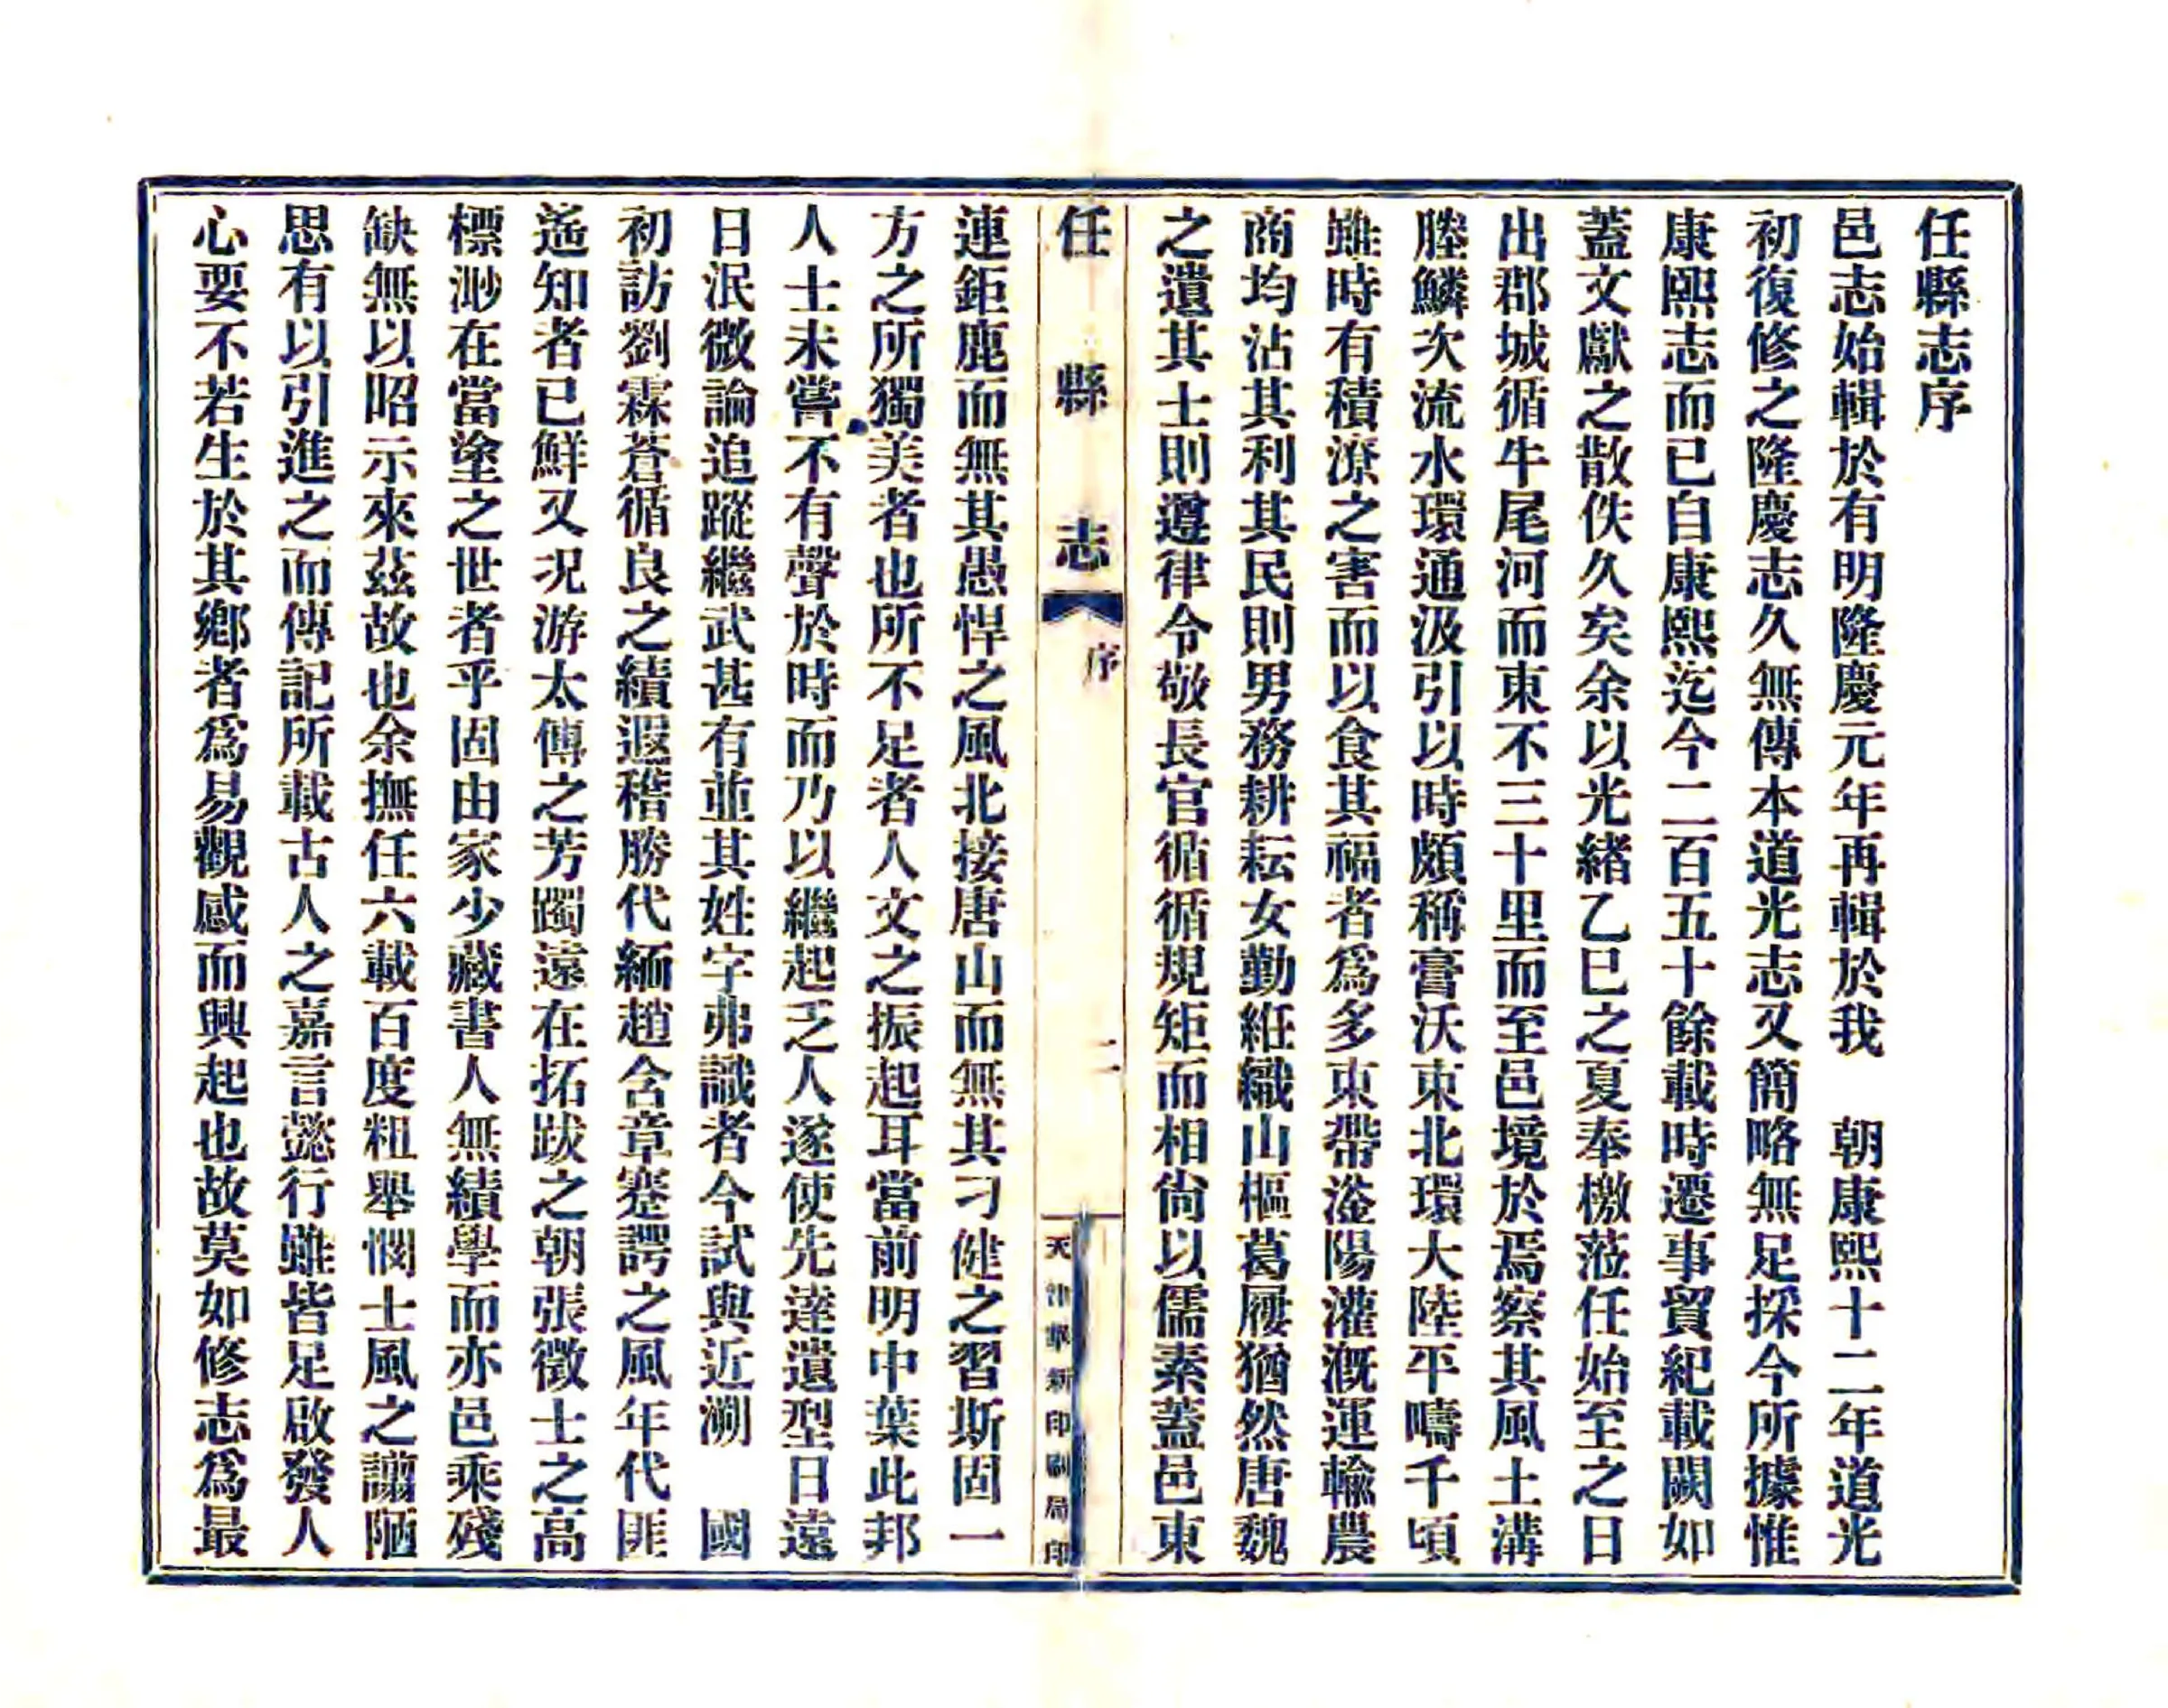 任縣志序
邑志始輯於有明隆慶元年再輯於我　朝康熙十二年道光
初復修之隆慶志久無傳本道光志又簡略無足採今所據惟
康熙志而已自康熙迄今二百五十餘載時遷事貿紀載闕如
蓋文獻之散佚久矣余以光緒乙巳之夏奉檄蒞任始至之日
出郡城循牛尾河而東不三十里而至邑境於焉察其風土溝
塍鱗次流水環通汲引以時頗稱膏沃東北環大陸平疇千頃
雖時有積潦之害而以食其福者爲多東帶滏陽灌溉運輸農
商均沾其利其民則男務耕耘女勤紝織山樞葛屨猶然唐魏
之遺其士則遵律令敬長官循循規矩而相尙以儒素蓋邑東
任縣志　序　二　天津華新印刷局印
連鉅鹿而無其愚悍之風北接唐山而無其刁健之習斯固一
方之所獨美者也所不足者人文之振起耳當前明中葉此邦
人士未嘗不有聲於時而乃以繼起乏人遂使先達遺型日遠
日泯微論追蹤繼武甚有並其姓字弗識者今試與近溯　國
初訪劉霖蒼循良之績遐稽勝代緬趙含章蹇諤之風年代匪
遙知者已鮮又況游太傅之芳躅遠在拓跋之朝張徵士之高
標渺在當塗之世者乎固由家少藏書人無績學而亦邑乘殘
缺無以昭示來茲故也余撫任六載百度粗舉憫士風之譾陋
思有以引進之而傳記所載古人之嘉言懿行雖皆足啟發人
心要不若生於其鄉者爲易觀感而興起也故莫如修志爲最